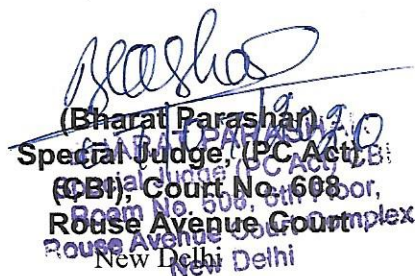 (Bharat Parashar)
Special Judge, (PC Act)
(CBI), Court No. 608
Rouse Avenue Court
New Delhi
BHARAT PARASHAR
Special Judge (PC Act) CBI
Room No. 608, 6th Floor,
Rouse Avenue Court Complex
New Delhi